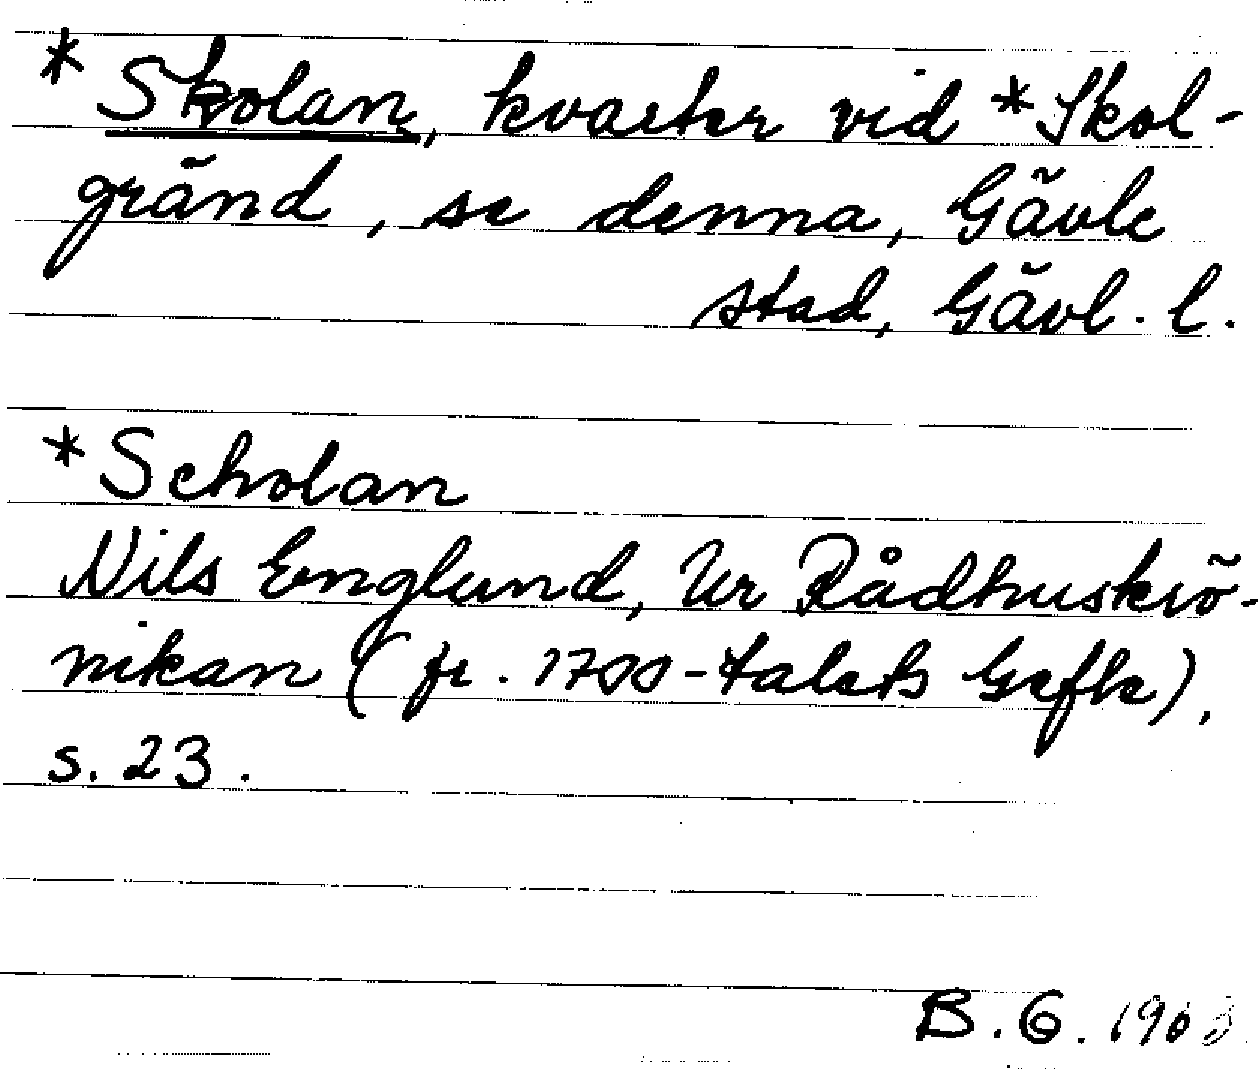 *Skolan, kvarter vid *Skol-
gränd, se denna, Gävle
stad, Gävl. l.
*Scholan
Nils Englund, Ur Rådhuskrö-
nikan (fr. 1700-talets Gefle),
s. 23.
B.G.